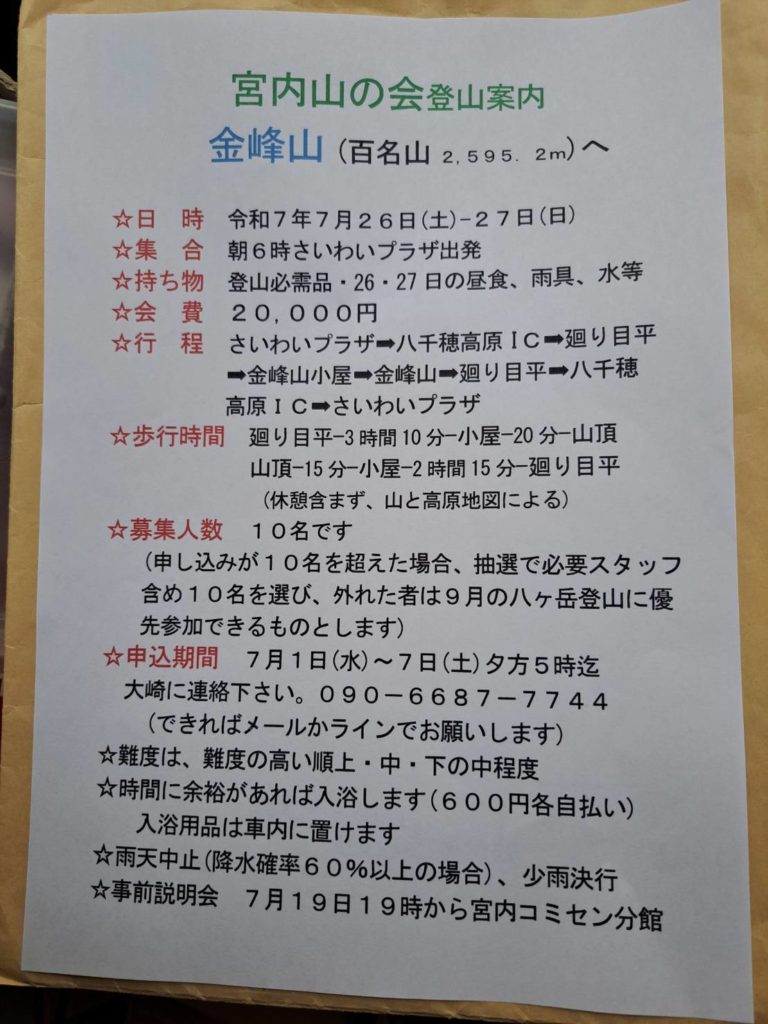 宮内山の会登山案内
金峰山(百名山 2,595.2m)へ
☆日 時 令和7年7月26日(土)-27日(日)
☆集 合 朝6時さいわいプラザ出発
☆持ち物 登山必需品・26・27日の昼食、雨具、水等
☆会 費 20,000円
☆行 程 さいわいプラザ➡八千穂高原IC➡廻り目平
➡金峰山小屋➡金峰山➡廻り目平➡八千穂
高原IC➡さいわいプラザ
☆歩行時間 廻り目平-3時間10分-小屋-20分-山頂
山頂-15分-小屋-2時間15分-廻り目平
(休憩含まず、山と高原地図による)
☆募集人数 10名です
(申し込みが10名を超えた場合、抽選で必要スタッフ
含め10名を選び、外れた者は9月の八ヶ岳登山に優
先参加できるものとします)
☆申込期間 7月1日(水)~7日(土)夕方5時迄
大崎に連絡下さい。090-6687-7744
(できればメールかラインでお願いします)
☆難度は、難度の高い順上・中・下の中程度
☆時間に余裕があれば入浴します(600円各自払い)
入浴用品は車内に置けます
☆雨天中止(降水確率60%以上の場合)、少雨決行
☆事前説明会 7月19日19時から宮内コミセン分館